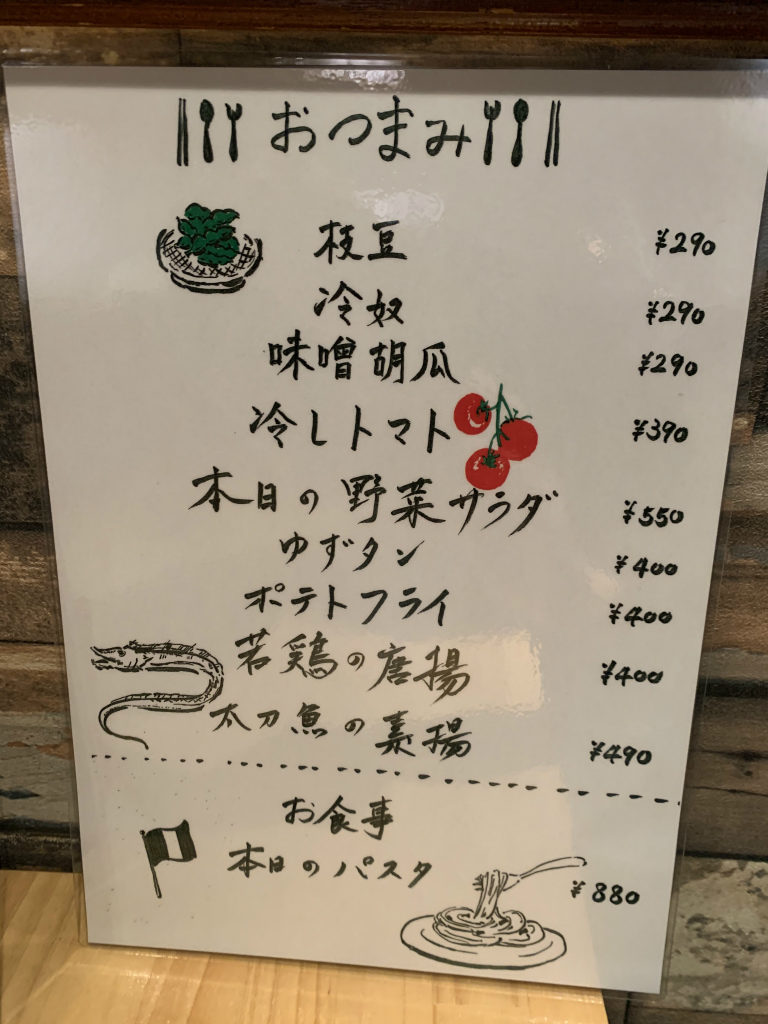 おつまみ
枝豆 ¥290
冷奴 ¥290
味噌胡瓜 ¥290
冷しトマト ¥390
本日の野菜サラダ ¥550
ゆずタン ¥400
ポテトフライ ¥400
若鶏の唐揚 ¥400
太刀魚の素揚 ¥490
お食事
本日のパスタ ¥880